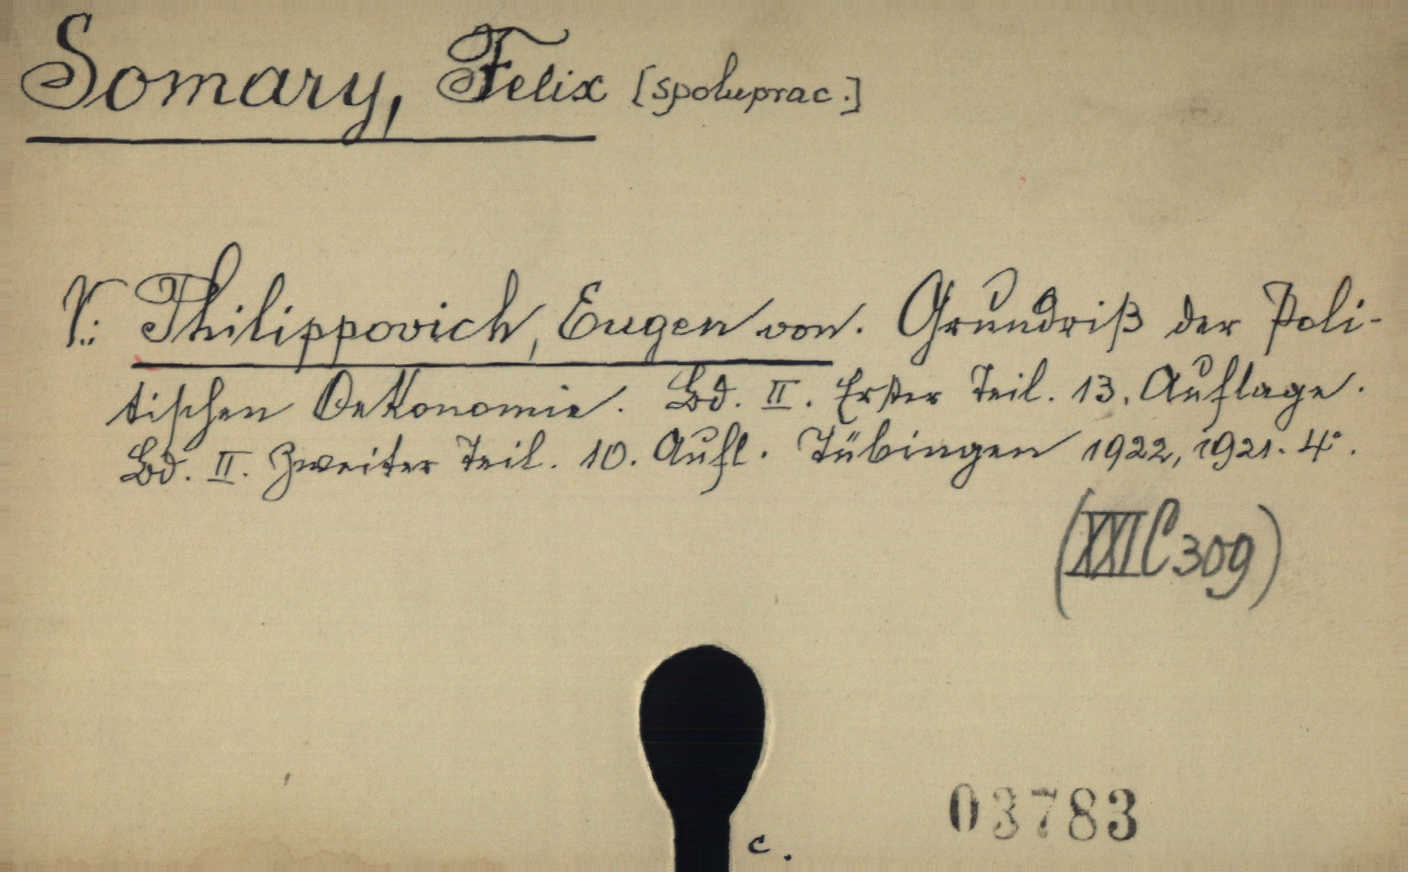 Somary, Felix [spoluprac.]
V: Philippovich, Eugen von. Grundriß der Poli-
tischen Oekonomie. Bd. II. Erster Teil. 13. Auflage.
Bd. II. Zweiter Teil. 10. Aufl. Tübingen 1922, 1921. 4°.
(XXI C 309)
03783
c.